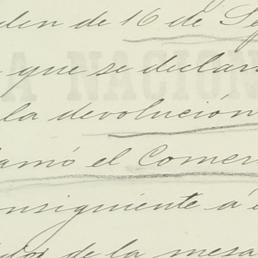 den de 16 de Se
que se declara
A NACION
la devolución
amó el Comer
onsiguiente á
de la mesa